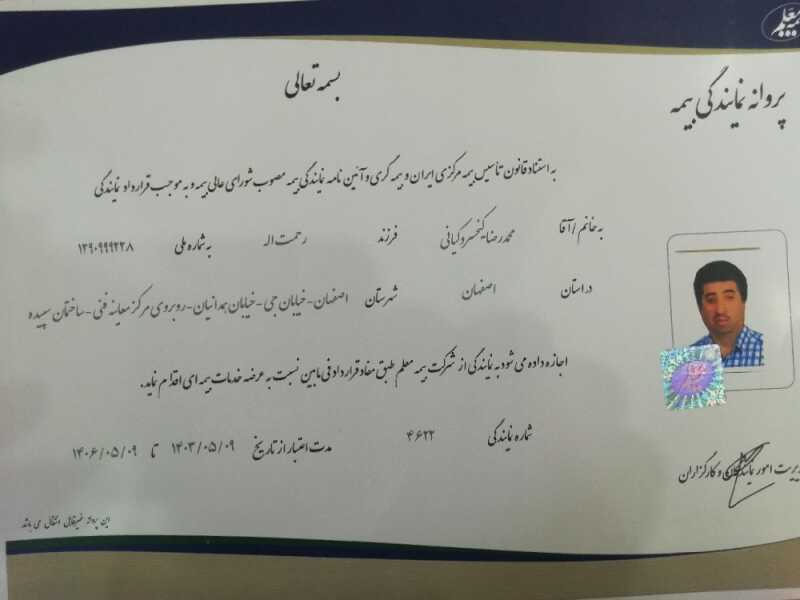 بیمه معلم
پروانه نمایندگی بیمه
بسمه تعالی
به استناد قانون تأسیس بیمه مرکزی ایران و بیمه گری و آئین نامه نمایندگی بیمه مصوب شورای عالی بیمه و به موجب قرارداد نمایندگی
به خانم / آقا محمدرضا کیخسرو کیانی فرزند رحمت اله به شماره ملی ۱۲۹۰۹۹۹۲۲۸
در استان اصفهان شهرستان اصفهان-خیابان جی-خیابان همدانیان-روبروی مرکز معاینه فنی-ساختمان سپیده
اجازه داده می شود به نمایندگی از شرکت بیمه معلم طبق مفاد قرارداد فی مابین نسبت به عرضه خدمات بیمه ای اقدام نماید.
شماره نمایندگی ۴۶۲۲ مدت اعتبار از تاریخ ۱۴۰۳/۰۵/۰۹ تا ۱۴۰۶/۰۵/۰۹
مدیریت امور نمایندگان و کارگزاران
این پروانه غیرقابل انتقال می باشد